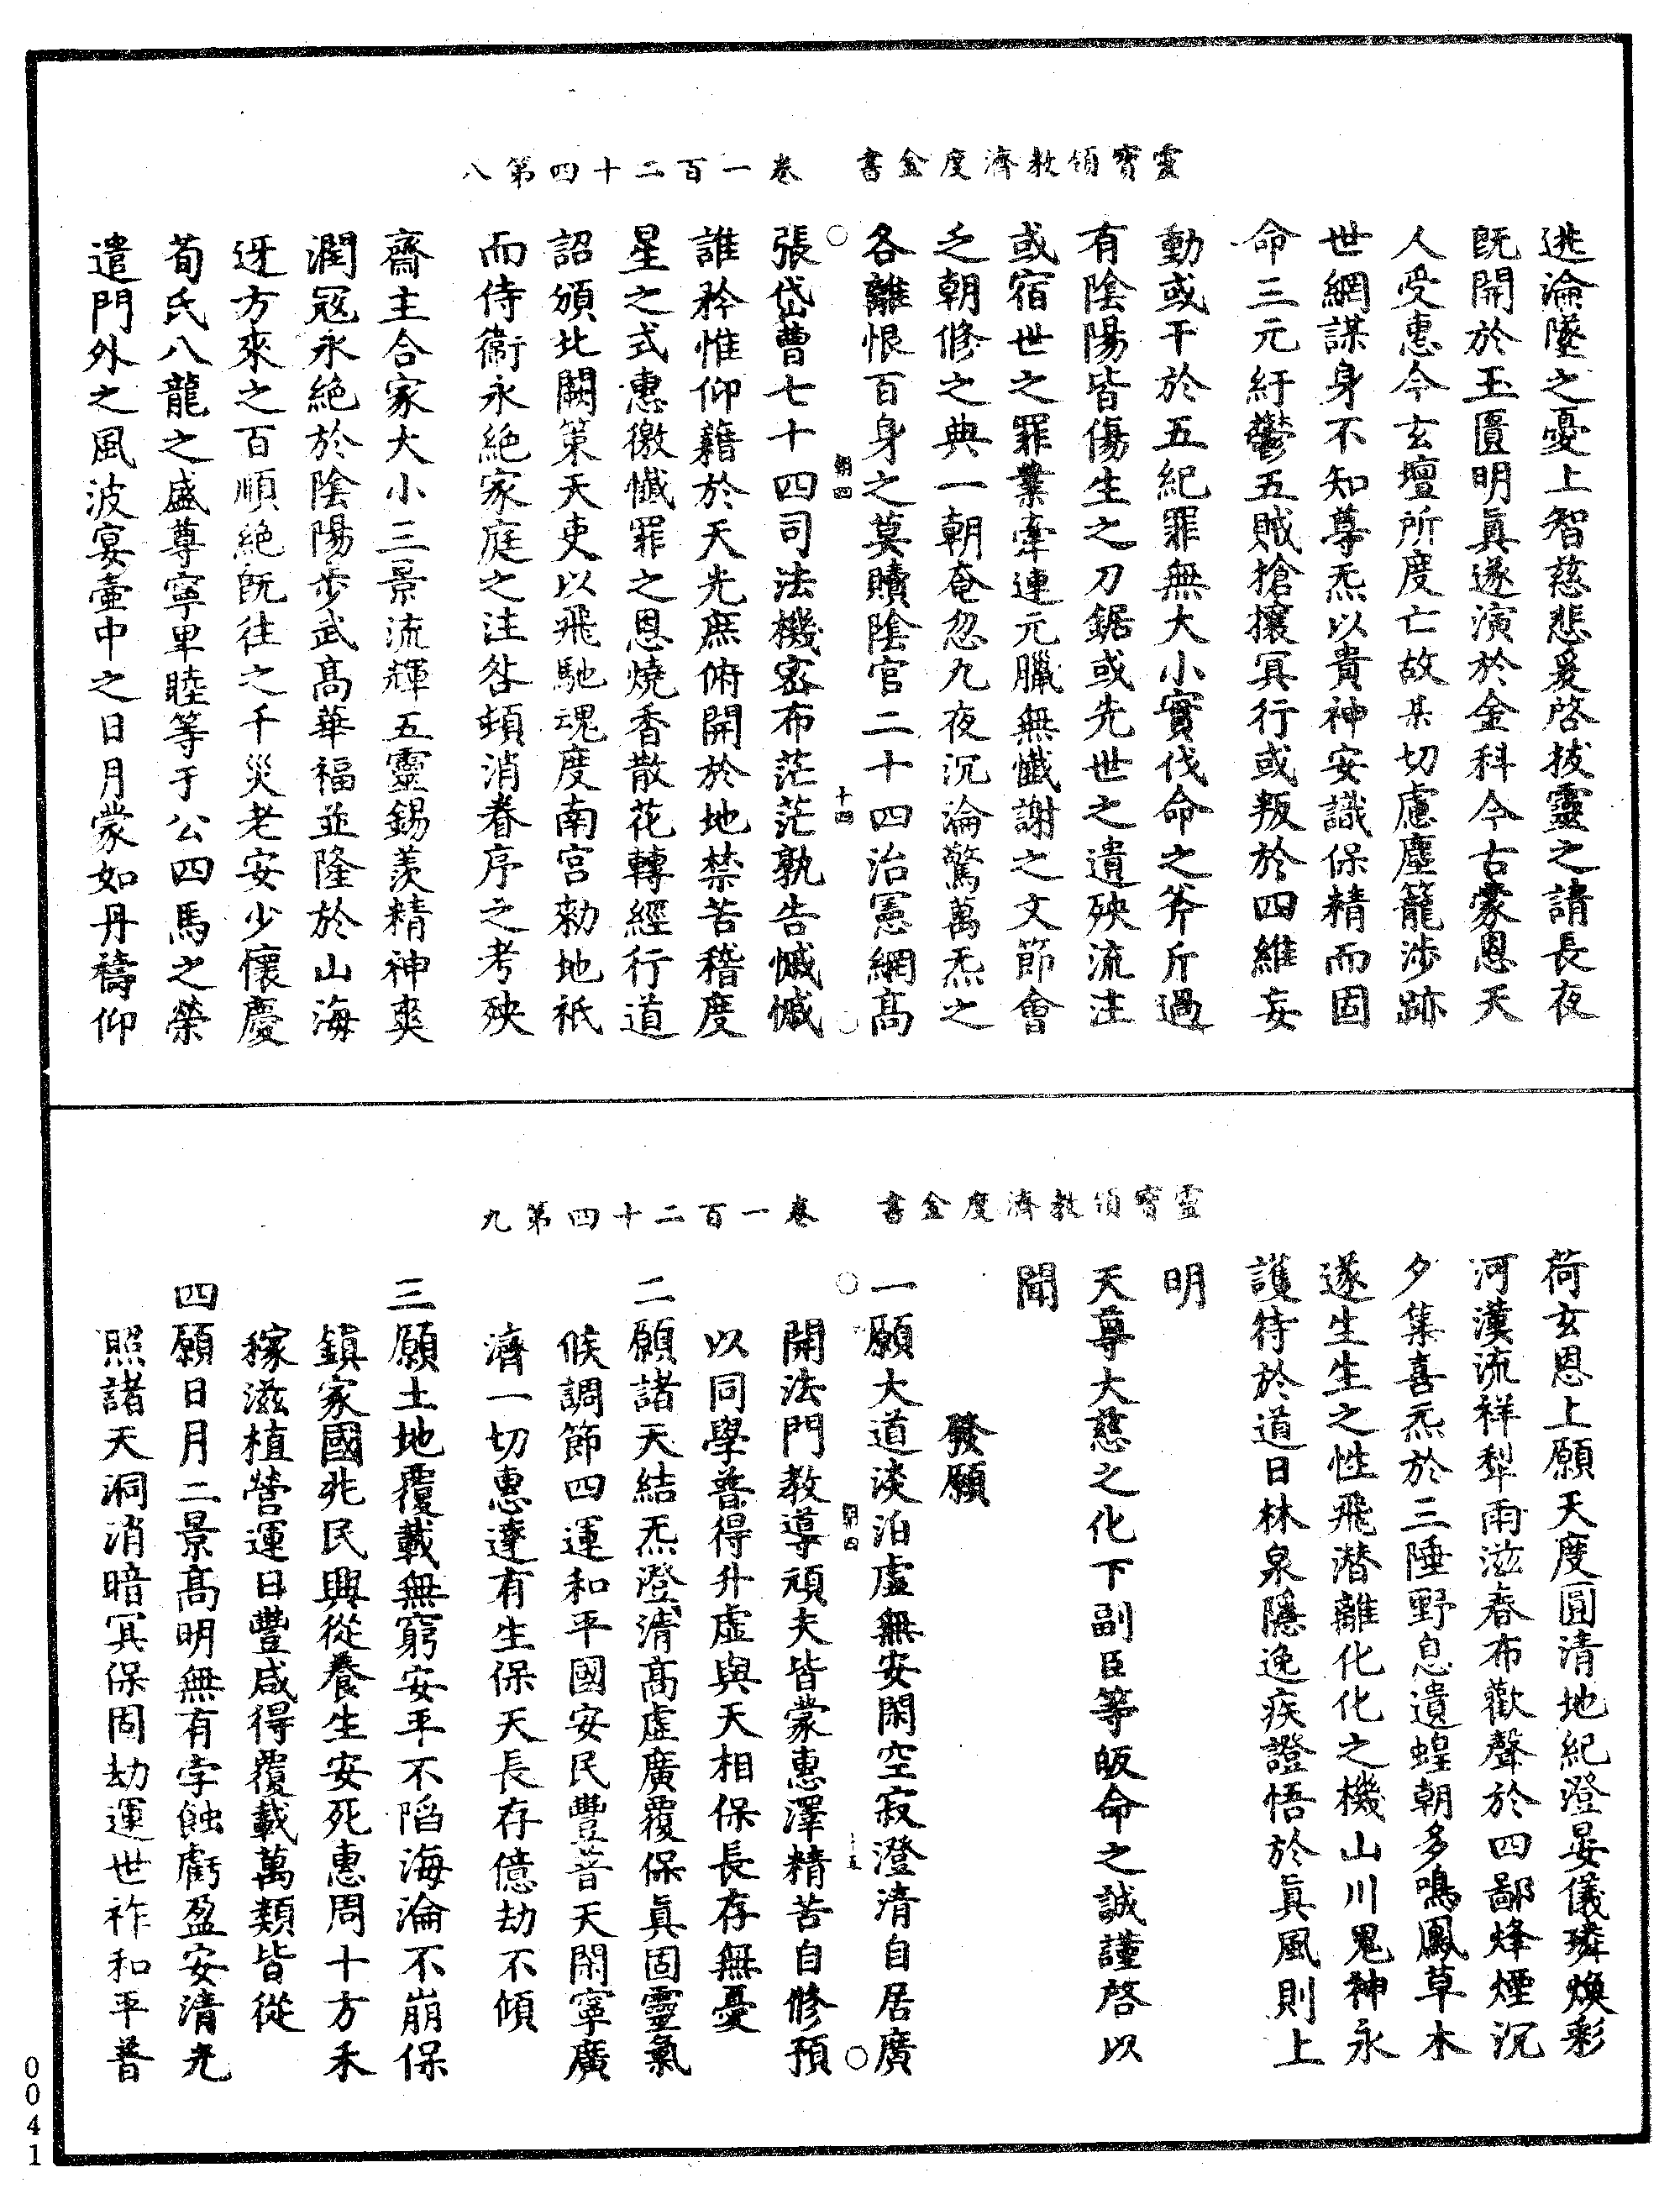 靈寶領教濟度金書 卷一百二十四第八
逃淪墜之憂上智慈悲爰啓拔靈之請長夜
既開於玉匱明眞遂演於金科今古蒙恩天
人受惠今玄壇所度亡故某切慮塵籠涉跡
世網謀身不知尊炁以貴神安識保精而固
命三元紆鬱五賊搶攘冥行或叛於四維妄
動或干於五紀罪無大小實伐命之斧斤過
有陰陽皆傷生之刀鋸或先世之遺殃流注
或宿世之罪業牽連元臘無懺謝之文節會
乏朝修之典一朝奄忽九夜沉淪驚萬炁之
各離恨百身之莫贖陰官二十四治憲網高
朝四 十四
張岱曹七十四司法機密布茫茫孰告慽慽
誰矜惟仰藉於天光庶俯開於地禁苦稽度
星之式惠徼懺罪之恩燒香散花轉經行道
詔頒北闕策天吏以飛馳魂度南宮勑地祇
而侍衞永絕家庭之注咎頓消眷序之考殃
齋主合家大小三景流輝五靈錫羨精神爽
潤寇永絕於陰陽步武高華福並隆於山海
迓方來之百順絕既往之千災老安少懷慶
荀氏八龍之盛尊寧卑睦等于公四馬之榮
遣門外之風波宴壷中之日月蒙如丹禱仰
靈寶領教濟度金書 卷一百二十四第九
荷玄恩上願天度圓清地紀澄晏儀璘煥彩
河漢流祥犁雨滋春布歡聲於四鄙烽煙沉
夕集喜炁於三陲野息遺蝗朝多鳴鳳草木
遂生生之性飛潛離化化之機山川鬼神永
護持於道日林泉隱逸疾證悟於眞風則上
明
天尊大慈之化下副臣等皈命之誠謹啓以
聞
發願
一願大道淡泊虛無安閑空寂澄清自居廣
朝四 十五
開法門教導頑夫皆蒙惠澤精苦自修預
以同學普得升虛與天相保長存無憂
二願諸天結炁澄清高虛廣覆保眞固靈氣
候調節四運和平國安民豐普天閑寧廣
濟一切惠達有生保天長存億劫不傾
三願土地覆載無窮安平不陷海淪不崩保
鎮家國兆民興從養生安死惠周十方禾
稼滋植營運日豐咸得覆載萬類皆從
四願日月二景高明無有孛蝕虧盈安清光
照諸天洞消暗冥保固劫運世祚和平普
0041